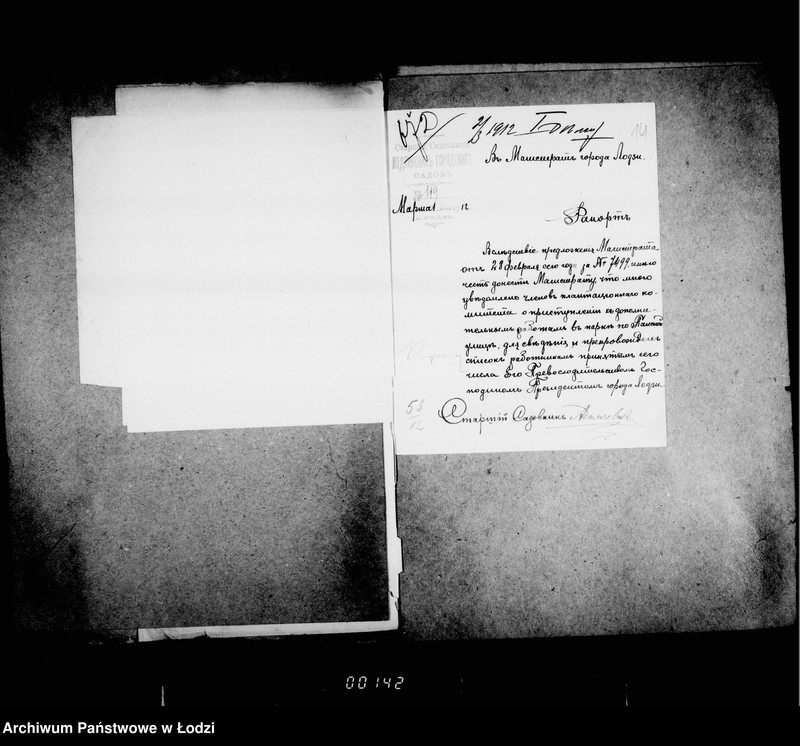 2/III 1912
14
Въ Магистратъ города Лодзи.
САДОВЪ
Марта 1 12
Рапортъ
Вслѣдствіе предложенія Магистрата
отъ 28 февраля сего года за № 7499, имѣю
честь донести Магистрату, что мною
увѣдомлено членовъ плантаціоннаго ко-
митета о приступленіи къ дополни-
тельнымъ работамъ въ паркѣ по
улицѣ, для свѣдѣнія, и препровождаемъ
списокъ работникамъ принятымъ сего
числа Его Превосходительствомъ Гос-
подиномъ Президентомъ города Лодзи.
53
12
Старшій Садовникъ
00142
Archiwum Państwowe w Łodzi